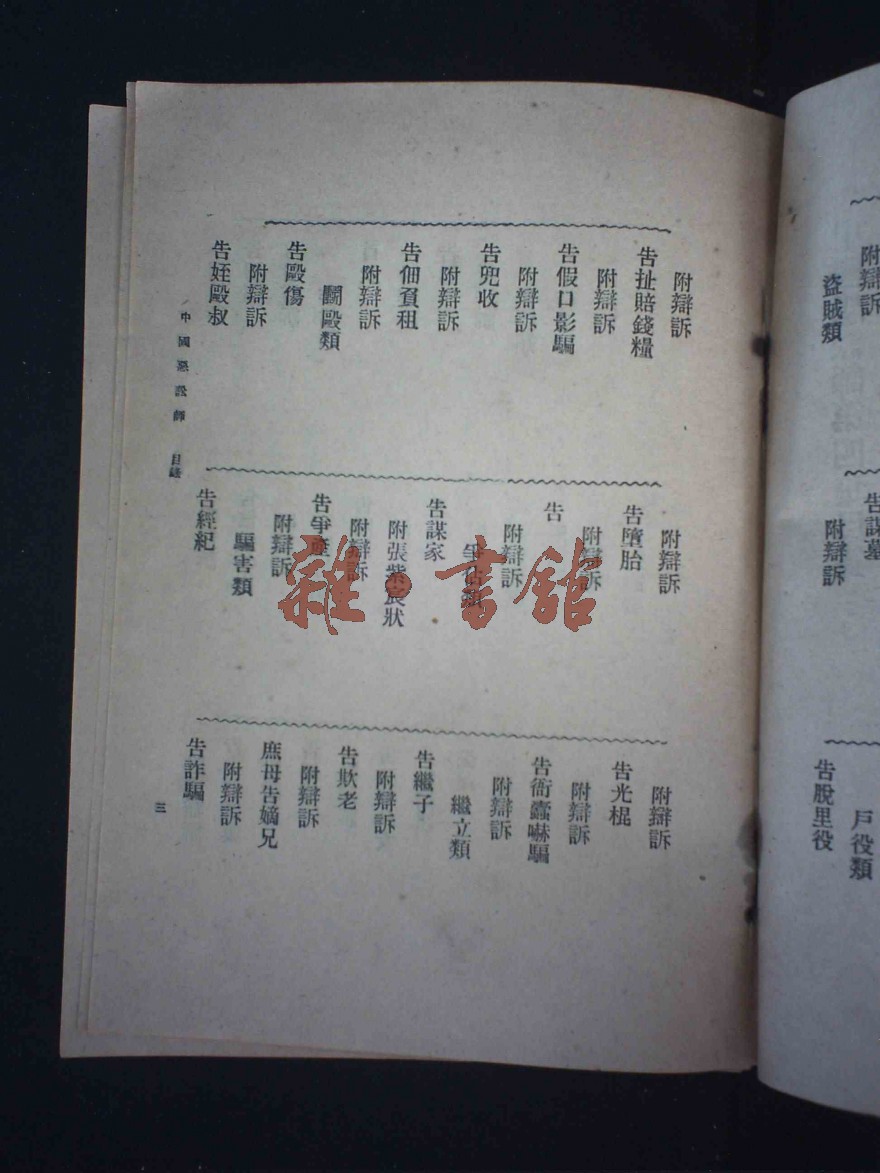 附辯訴
告扯賠錢糧
附辯訴
告假口影騙
附辯訴
告兜收
附辯訴
告佃負租
附辯訴
鬭毆類
告毆傷
附辯訴
告姪毆叔
附辯訴
告墮胎
附辯訴
告
附辯訴
爭佔類
告謀家
附張紫宸狀
附辯訴
告爭產
附辯訴
騙害類
告經紀
附辯訴
告光棍
附辯訴
告衙蠹嚇騙
附辯訴
繼立類
告繼子
附辯訴
告欺老
附辯訴
庶母告嫡兄
附辯訴
告詐騙
中國惡訟師 目錄
三
附辯訴
盜賊類
告謀墓
附辯訴
戶役類
告脫里役
雜·書館